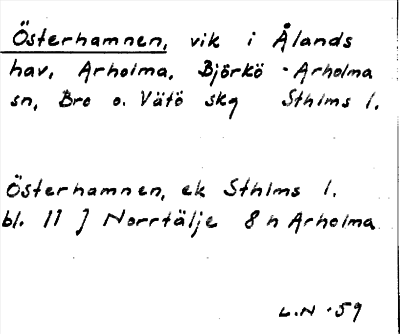 Österhamnen, vik i Ålands
hav, Arholma, Björkö-Arholma
sn, Bro o. Vätö skg Sthlms l.
Österhamnen, ek Sthlms l.
bl. 11 J Norrtälje 8 h Arholma
L.N-59